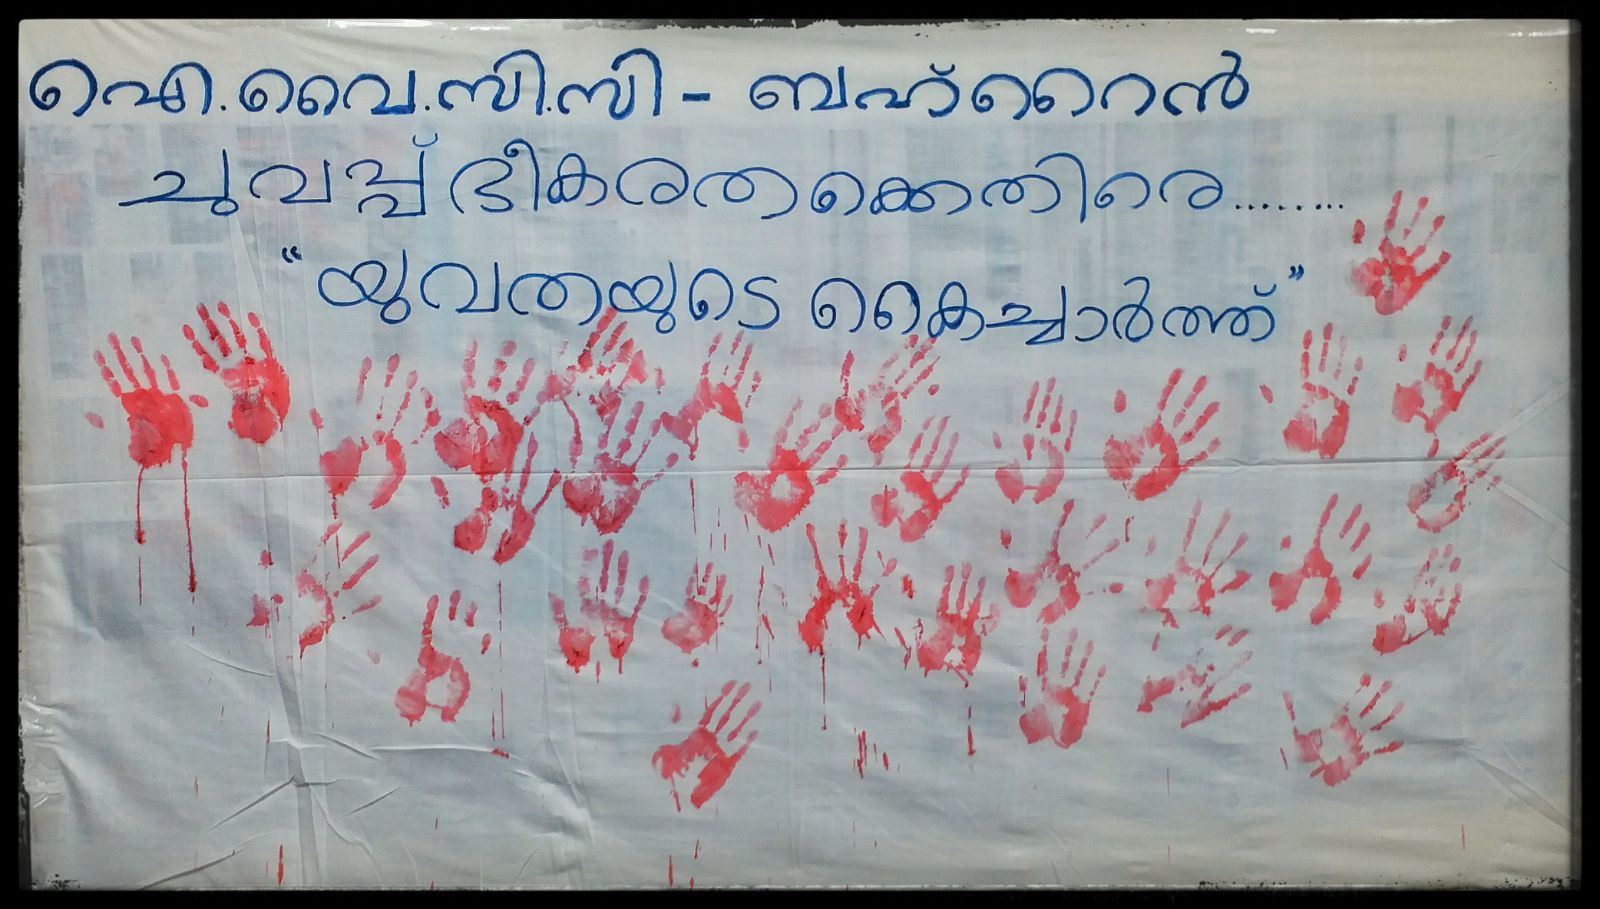 ഐ.വൈ.സി.സി - ബഹ്റൈൻ
ചുവപ്പ് ഭീകരതക്കെതിരെ........
“യുവതയുടെ കൈച്ചാർത്ത്”